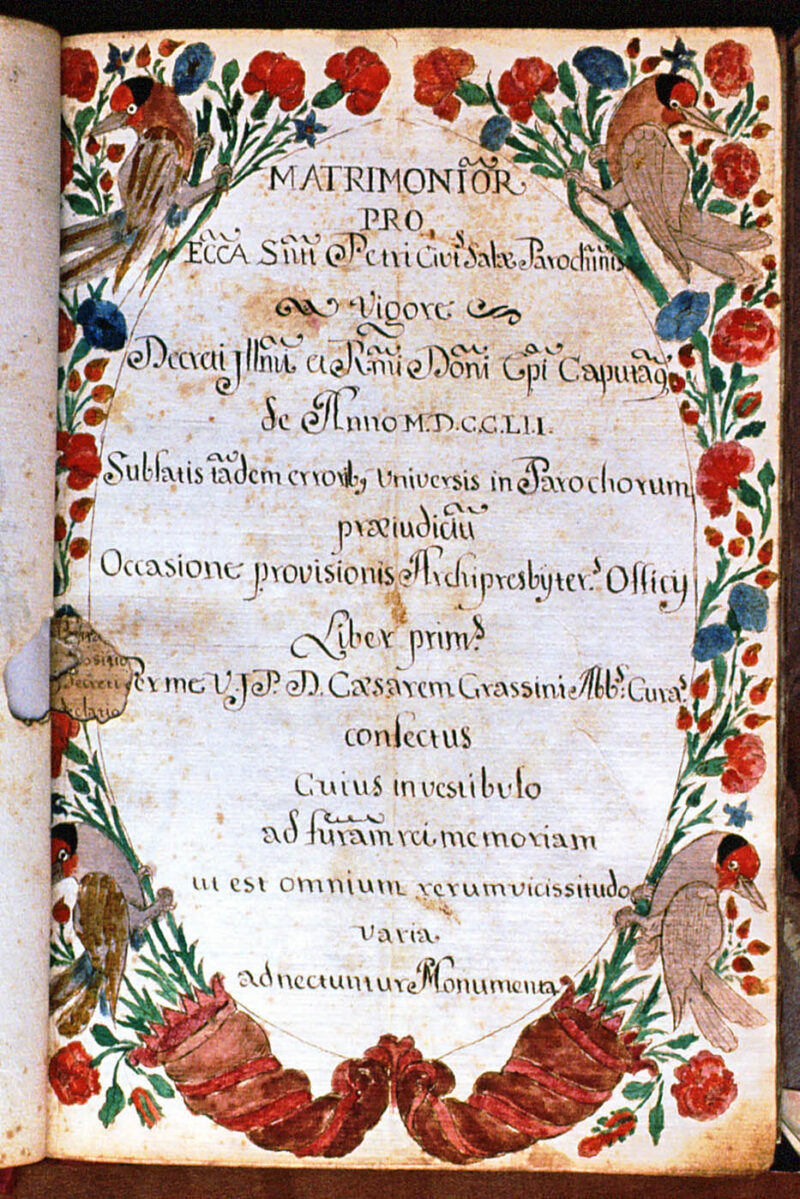 MATRIMONIOR
PRO
ECCA Smi Petri Civis Salæ Parochinis
Vigore
Decreti Jllmi et Rmi Domi Epi Caputaq
de Anno M.D.C.C.L.I.I.
Sublatis tadem errorib9 universis in Parochorum
præiudiciu
Occasione provisionis Archipresbyter.s Officij
Liber prim.s
Per me U.J.P. D. Cæsarem Grassini Abb.s: Cura.s
confectus
Cuius in vestibulo
ad furam rei memoriam
ut est omnium rerum vicissitudo
varia
adnectuntur Monumenta
Decreti